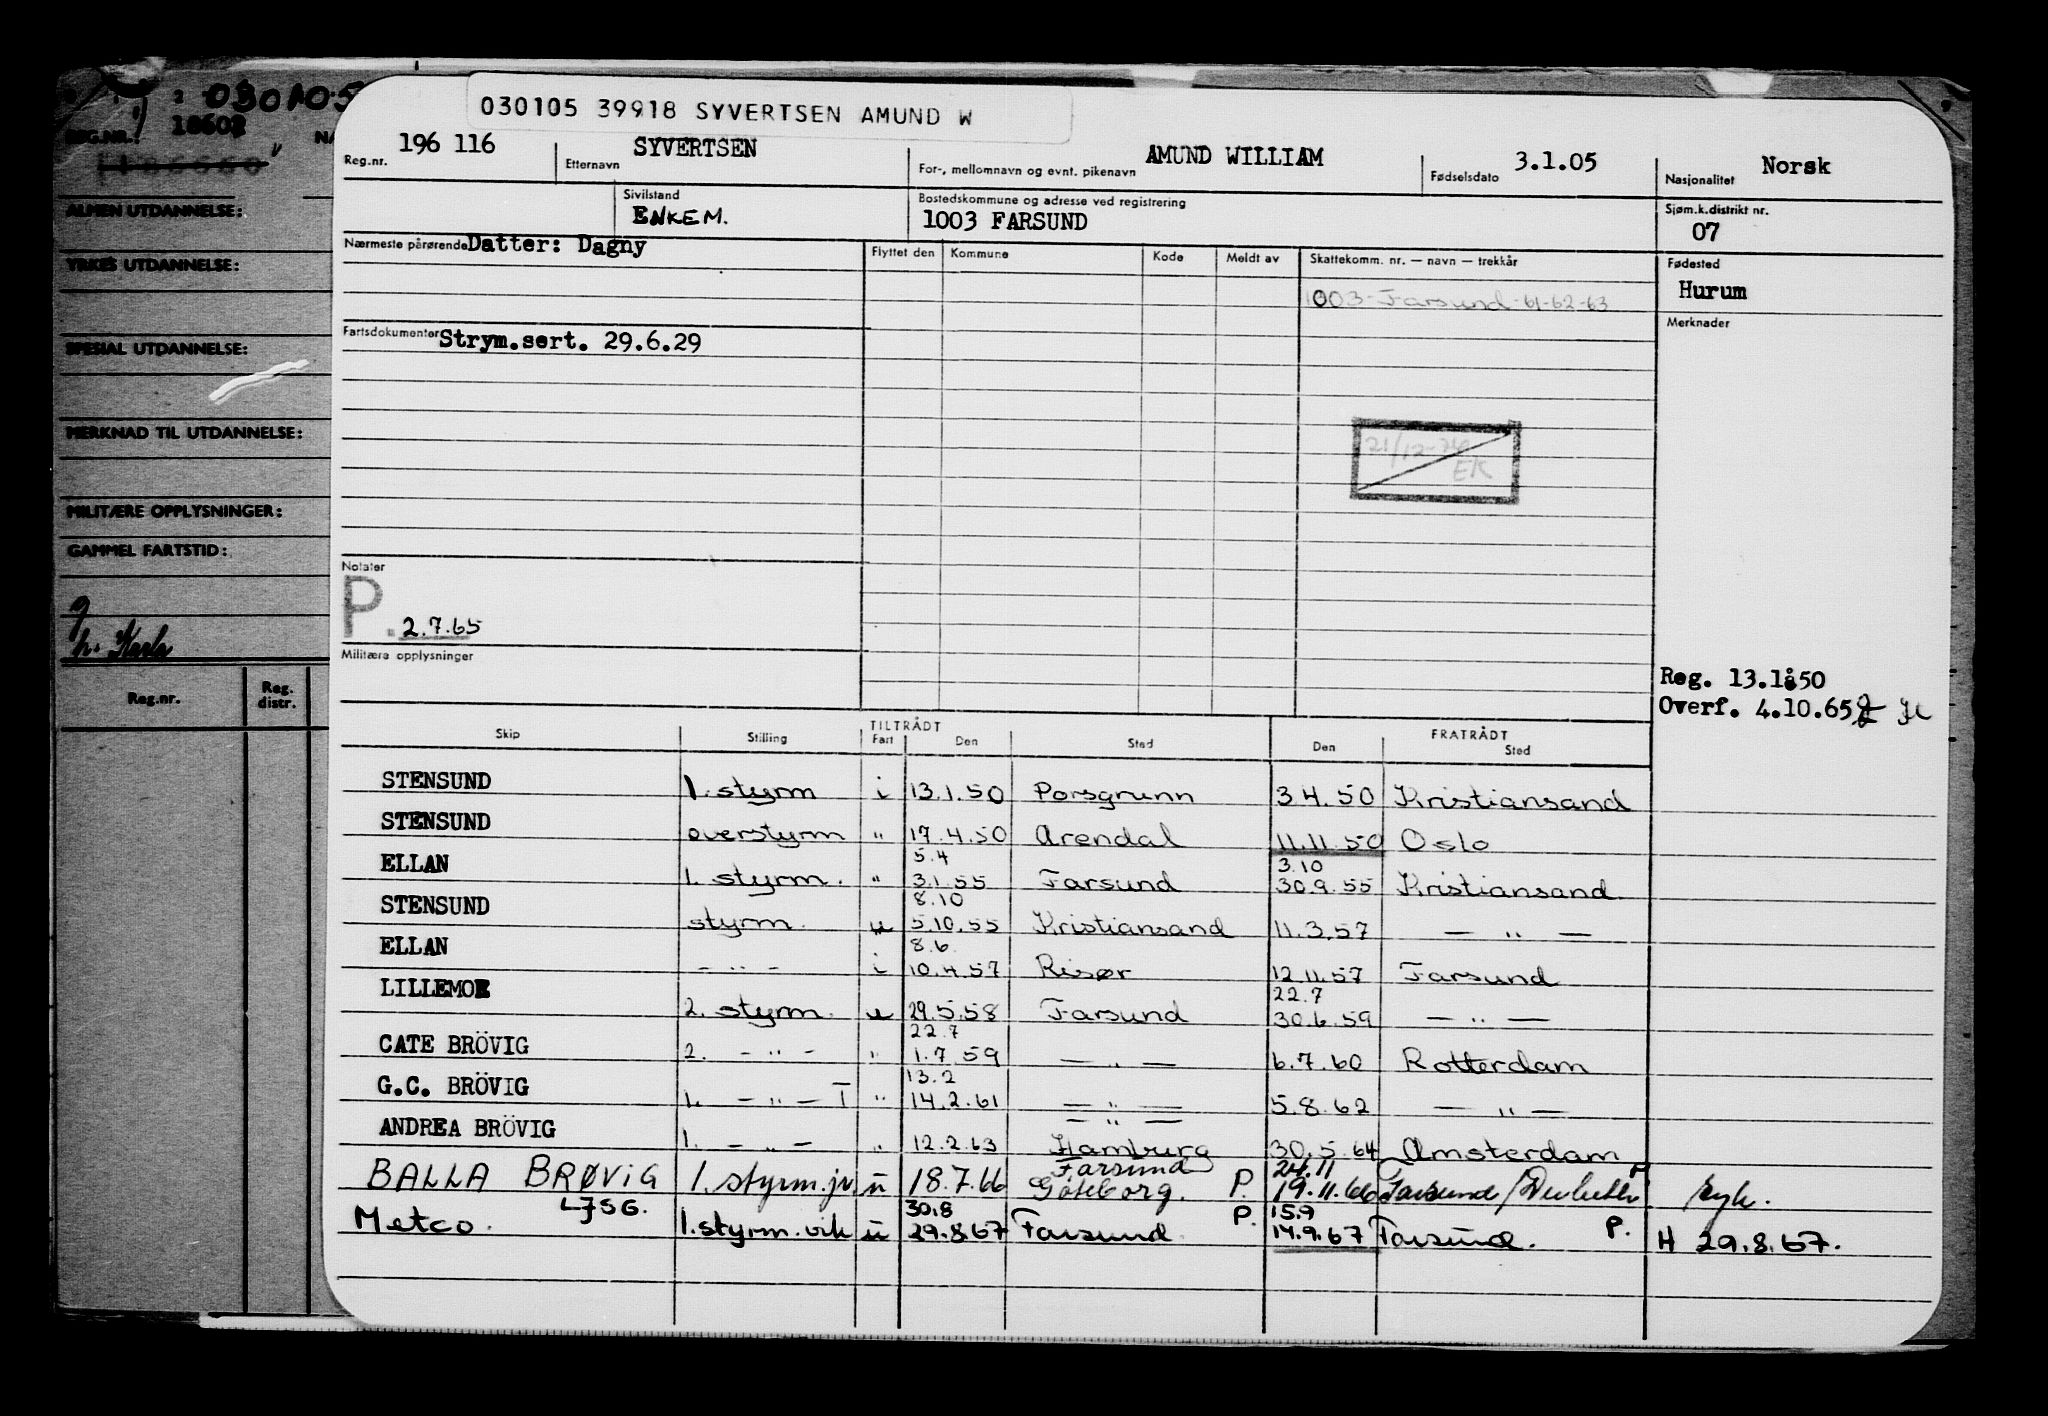 030105 39918 SYVERTSEN AMUND W
030105
REG.NR. 18602
ALMEN UTDANNELSE:
YRKES UTDANNELSE:
SPESIAL UTDANNELSE:
MERKNAD TIL UTDANNELSE:
MILITÆRE OPPLYSNINGER:
GAMMEL FARTSTID:
Reg.nr. Reg. distr.
Reg.nr. 196 116 Etternavn SYVERTSEN For-, mellomnavn og evnt. pikenavn AMUND WILLIAM Fødselsdato 3.1.05 Nasjonalitet Norsk
Sivilstand ENKEM. Bostedskommune og adresse ved registrering 1003 FARSUND Sjøm.k.distrikt nr. 07
Nærmeste pårørende Datter: Dagny Flyttet den Kommune Kode Meldt av Skattekomm. nr. — navn — trekkår Fødested Hurum
1003-Farsund-61-62-63
Fartsdokumenter Strym.sert. 29.6.29 Merknader
21/12-
EK
Notater
P. 2.7.65
Militære opplysninger
Reg. 13.1.50
Overf. 4.10.65
TILTRÅDT FRATRÅDT
Skip Stilling Fart Den Sted Den Sted
STENSUND 1. styrm i 13.1.50 Porsgrunn 3.4.50 Kristiansand
STENSUND overstyrm " 17.4.50 Arendal 11.11.50 Oslo
5.4 3.10
ELLAN 1. styrm. " 3.1.55 Farsund 30.9.55 Kristiansand
8.10
STENSUND styrm. u 5.10.55 Kristiansand 11.3.57 — " —
8.6
ELLAN - " - i 10.4.57 Risør 12.11.57 Farsund
22.7
LILLEMOR 2. styrm. u 29.5.58 Farsund 30.6.59 — " —
22.7
CATE BRÖVIG 2. - " - " 1.7.59 — " — 6.7.60 Rotterdam
13.2
G.C. BRÖVIG 1. — " — T " 14.2.61 — " — 5.8.62 — " —
— " —
ANDREA BRÖVIG 1. — " — " 12.2.63 Hamburg 30.5.64 Amsterdam
Farsund 24.11
BALLA BRØVIG 1. styrm. jr. u 18.7.66 Göteborg. P. 19.11.66 Farsund/ syk.
LJSG. 30.8 15.9
Metco. 1. styrm. vik u 29.8.67 Farsund P. 14.9.67 Farsund. P. H 29.8.67.